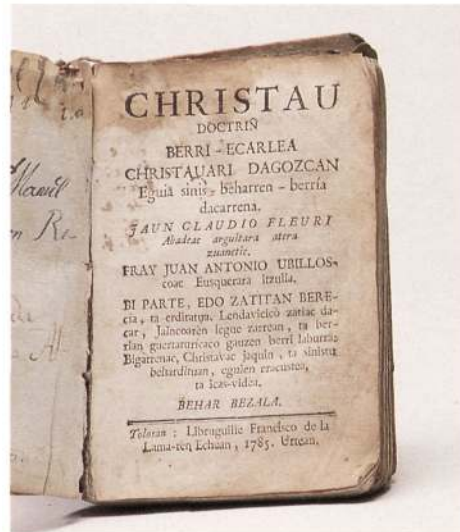 CHRISTAU
DOCTRIÑ
BERRI-ECARLEA
CHRISTAUARI DAGOZCAN
Eguia sinis-beharren-berria
dacarrena.
JAUN CLAUDIO FLEURI
Abadeac arguitara atera
zuanetic.
FRAY JUAN ANTONIO UBILLOS-
coac Eusquerara itzulia.
BI PARTE, EDO ZATITAN BERE-
cia, ta erditatua. Lendavicico zatiac da-
car, Jaincoaren legue zarrean, ta ber-
rian guertaturicaco gauzen berri laburra:
Bigarrenac, Christavac jaquin, ta sinistu
bearrdituan, eguien eracustea,
ta icas-videa.
BEHAR BEZALA.
Tolosan: Libruguille Francisco de la
Lama-ren Echean, 1785. Urtean.